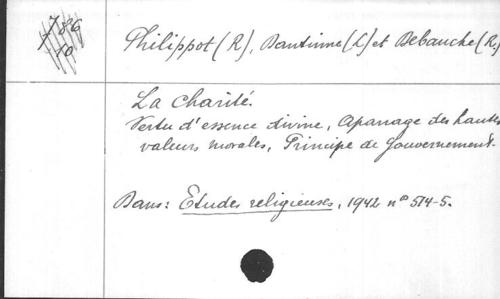 7886
10
Philippot (R), Dantinne (L) et Debauche (R.)
La Charité.
Vertu d'essence divine, Apanage des hautes
valeurs morales, Principe de Gouvernement.
Dans: Etudes religieuses, 1942 n° 514-5.